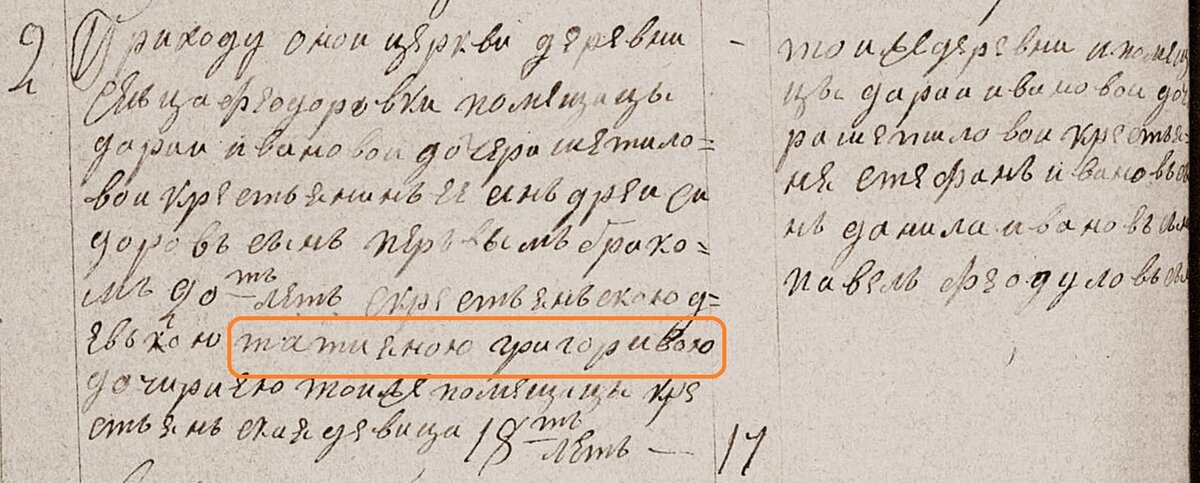 2
Приходу оной церкви деревни
сельца феодоровки помещицы
дарии ивановой дочери шетило=
вой крестьянинъ ея анъдрей си
доровъ сынъ первымъ брако=
мъ 20ть летъ скрестьянъскою д=
евъкою татияною григоривою
дочирию тоиже помещицы кре
стьянъская девица 18ть
летъ —
17
— тоижедеревни ипомещи
цы дарии ивановой доч
ри шетиловой крестья=
не стефанъ ивановъ сы
нъ данила ивановъ сынъ
павелъ феодуловъ сынъ